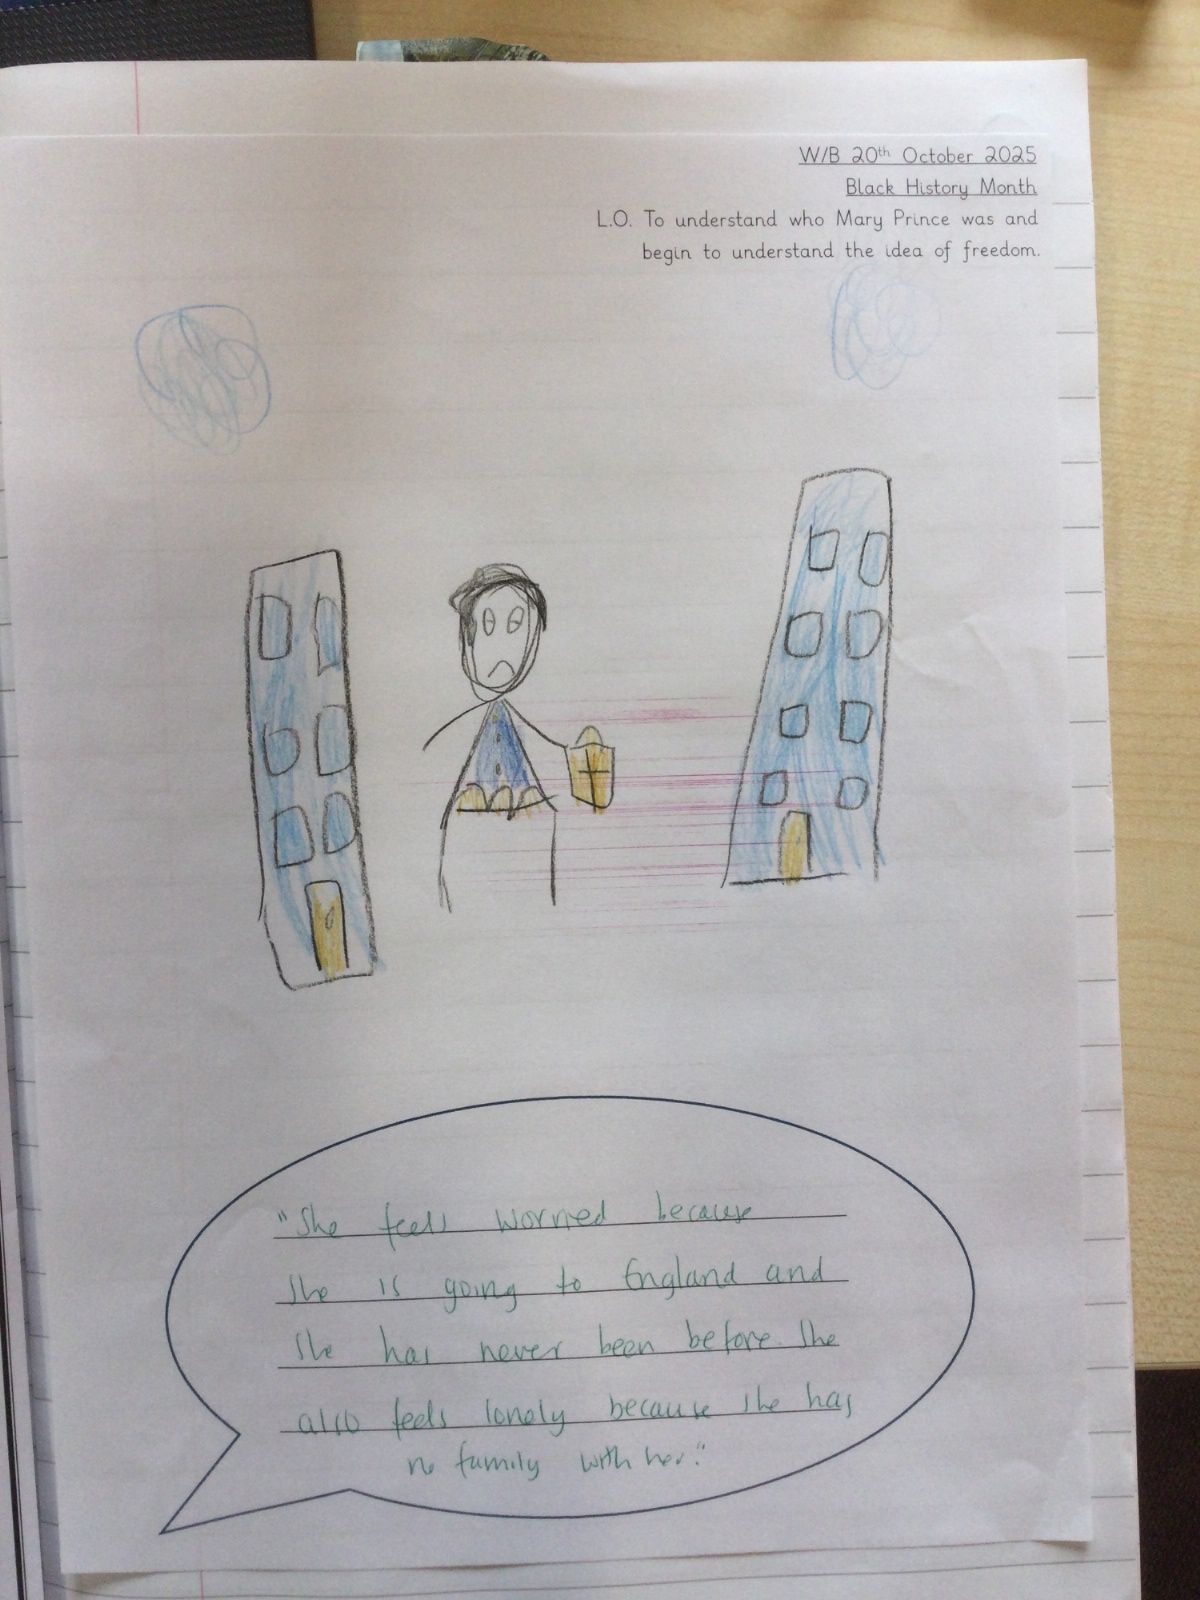 W/B 20th October 2025
Black History Month
L.O. To understand who Mary Prince was and
begin to understand the idea of freedom.
"She feels worried because
she is going to England and
she has never been before. She
also feels lonely because she has
no family with her."